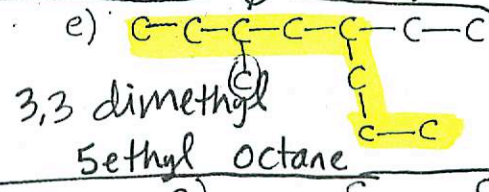 e) C—C—C—C—C—C—C
C
C
C—C
3,3 dimethyl
5ethyl octane